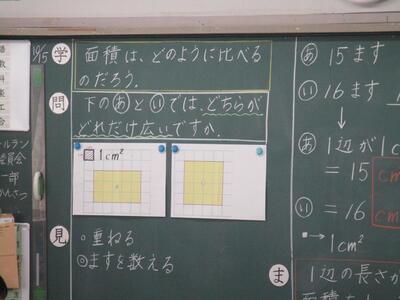 学 面積は、どのように比べる
のだろう。
問 下のあといでは、どちらが
どれだけ広いですか。
1cm²
見 ・重ねる
◎ますを数える
あ 15ます
い 16ます
↓
あ 1辺が1c
= 15 cm
い = 16 cm
■→1cm²
ま 1辺の長さが
面積を